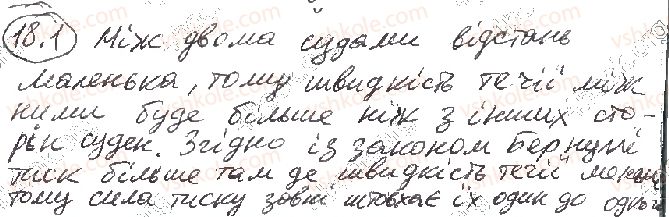 18.1 Між двома судами відстань
маленька, тому швидкість течії між
ними буде більше ніж з інших сто-
рін суден. Згідно із законом Бернуллі
тиск більше там де швидкість течії менше
тому сила тиску зовні штовхає їх один до одного